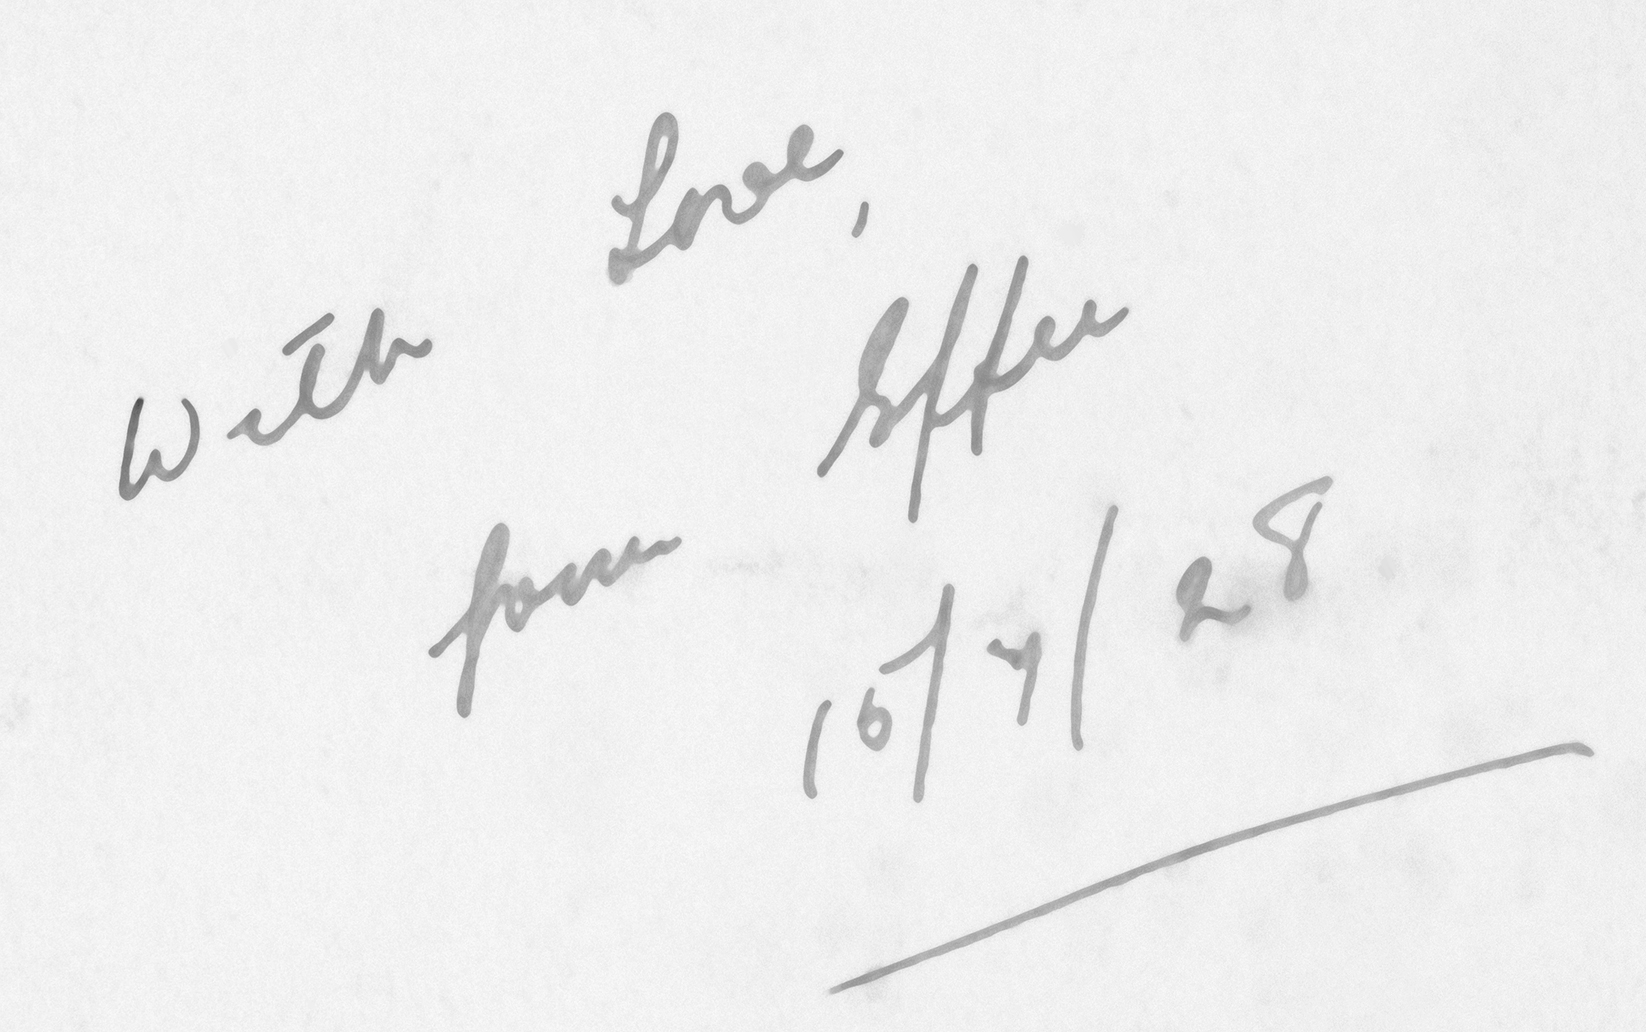 With Love,
from Effie
10/4/28